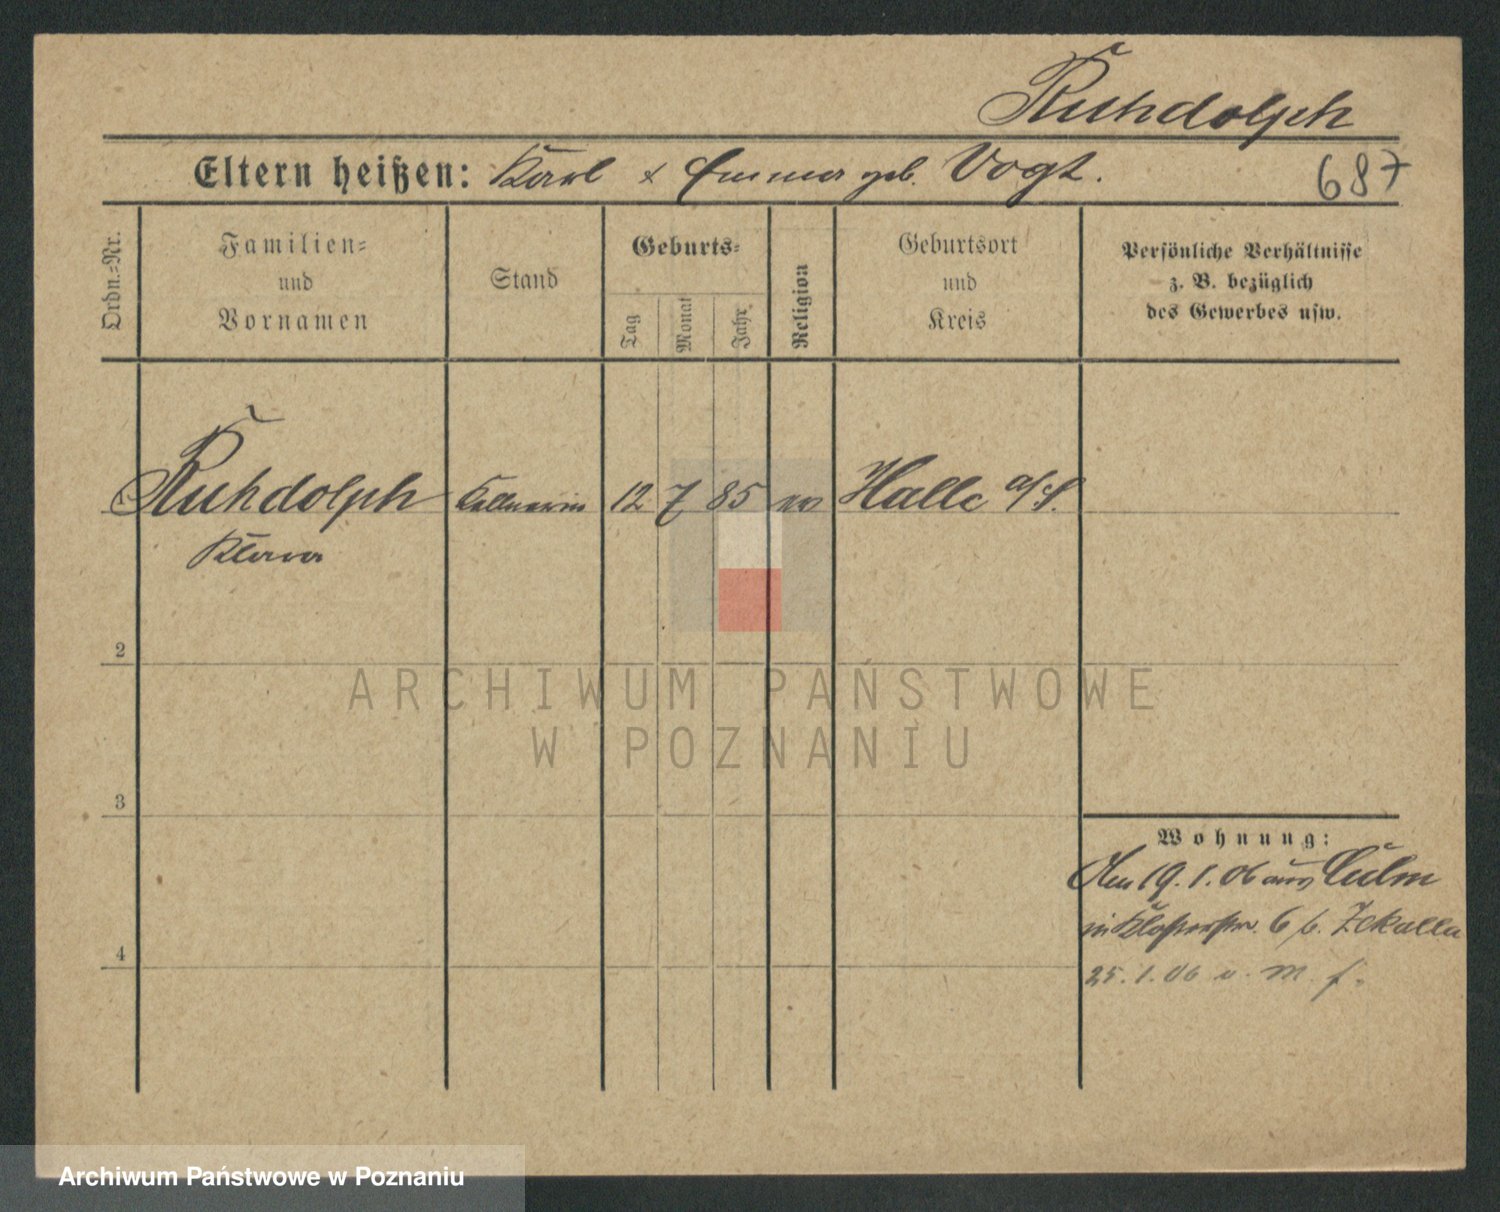 Ruhdolph
Eltern heißen: Karl & Emma geb. Vogt.
687
Ordn.=Nr.
Familien=
und
Vornamen
Stand
Geburts=
Tag
Monat
Jahr
Religion
Geburtsort
und
Kreis
Persönliche Verhältnisse
z. B. bezüglich
des Gewerbes usw.
Ruhdolph Kellnerin 12 7 85 Halle a/S.
Klara
2
3
4
Wohnung:
Am 19.1.06 aus Culm
in Klosterstr. 6 b. Zekalla
25.1.06 v. M. f.
ARCHIWUM PAŃSTWOWE
W POZNANIU
Archiwum Państwowe w Poznaniu